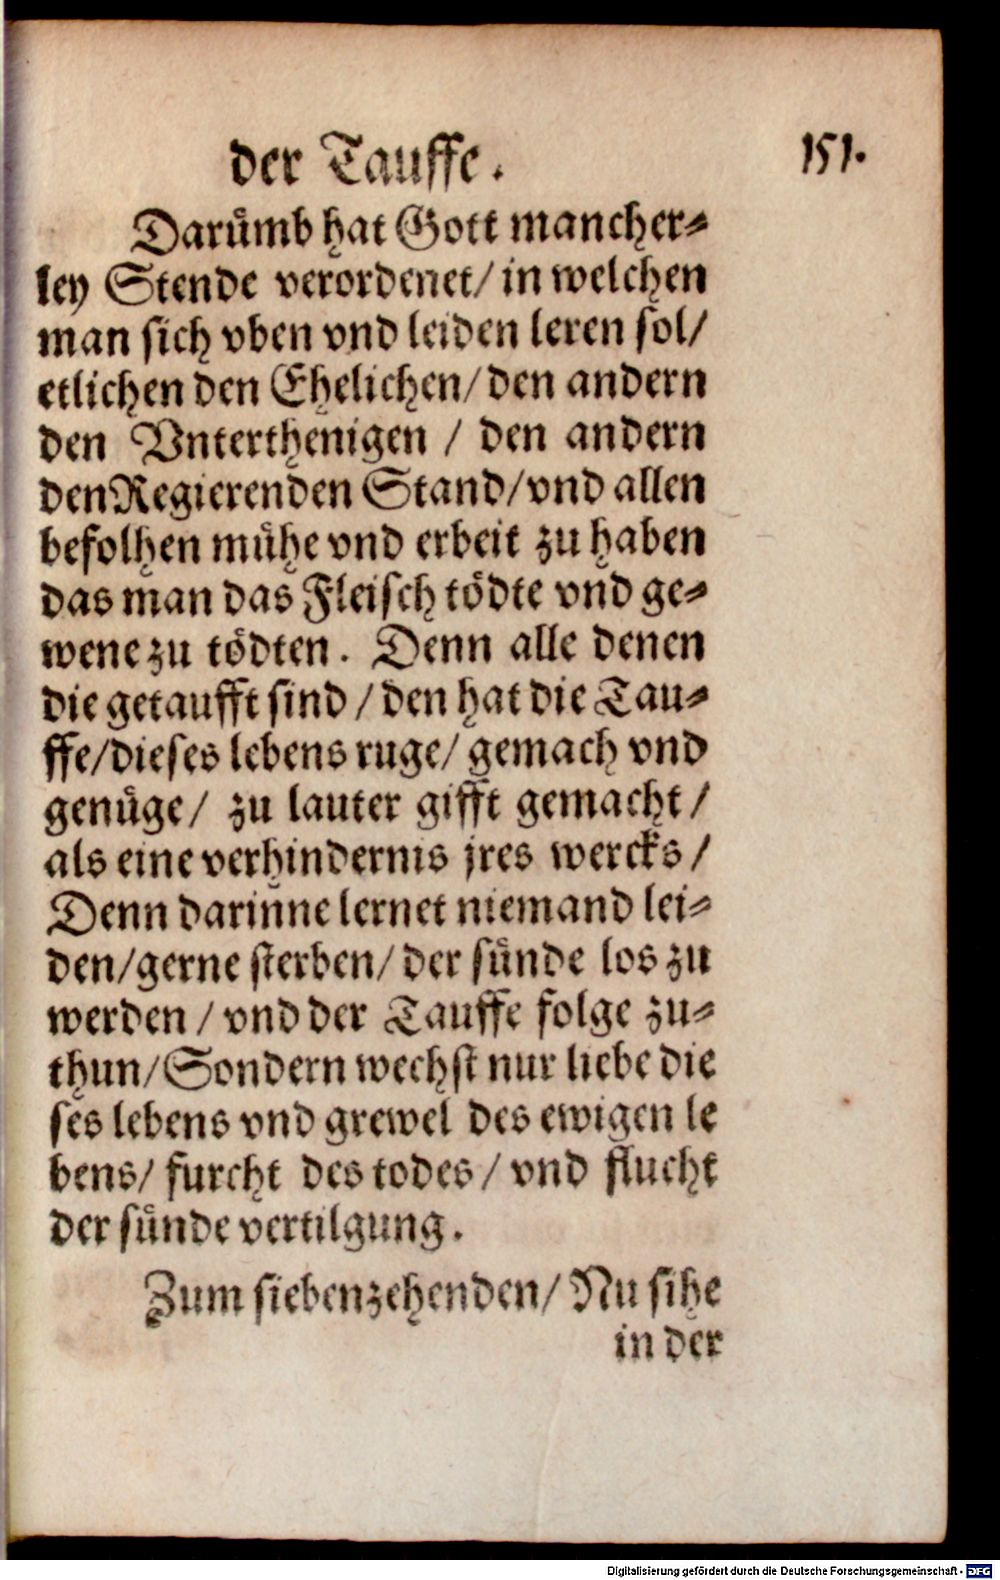 der Tauffe.
151.
Darumb hat Gott mancher⸗
ley Stende verordenet/ in welchen
man sich vben vnd leiden leren sol/
etlichen den Ehelichen/ den andern
den Vnterthenigen / den andern
den Regierenden Stand/ vnd allen
befolhen mühe vnd erbeit zu haben
das man das Fleisch tödte vnd ge⸗
wene zu tödten. Denn alle denen
die getaufft sind / den hat die Tau⸗
ffe/ dieses lebens ruge/ gemach vnd
genüge/ zu lauter gifft gemacht /
als eine verhindernis jres wercks /
Denn darinne lernet niemand lei⸗
den/ gerne sterben/ der sünde los zu
werden / vnd der Tauffe folge zu⸗
thun/ Sondern wechst nur liebe die
ses lebens vnd grewel des ewigen le
bens/ furcht des todes / vnd flucht
der sünde vertilgung.
Zum siebenzehenden/ Nu sihe
in der
Digitalisierung gefördert durch die Deutsche Forschungsgemeinschaft - DFG